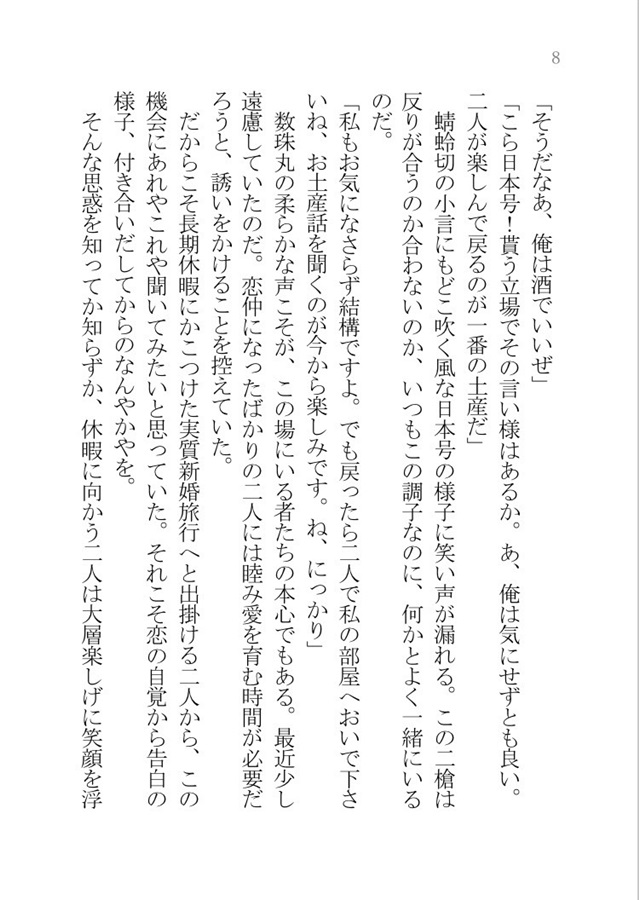 8
「そうだなあ、俺は酒でいいぜ」
「こら日本号！貰う立場でその言い様はあるか。あ、俺は気にせずとも良い。
二人が楽しんで戻るのが一番の土産だ」
蜻蛉切の小言にもどこ吹く風な日本号の様子に笑い声が漏れる。この二槍は
反りが合うのか合わないのか、いつもこの調子なのに、何かとよく一緒にいる
のだ。
「私もお気になさらず結構ですよ。でも戻ったら二人で私の部屋へおいで下さ
いね、お土産話を聞くのが今から楽しみです。ね、にっかり」
数珠丸の柔らかな声こそが、この場にいる者たちの本心でもある。最近少し
遠慮していたのだ。恋仲になったばかりの二人には睦み愛を育む時間が必要だ
ろうと、誘いをかけることを控えていた。
だからこそ長期休暇にかこつけた実質新婚旅行へと出掛ける二人から、この
機会にあれやこれや聞いてみたいと思っていた。それこそ恋の自覚から告白の
様子、付き合いだしてからのなんやかやを。
そんな思惑を知ってか知らずか、休暇に向かう二人は大層楽しげに笑顔を浮